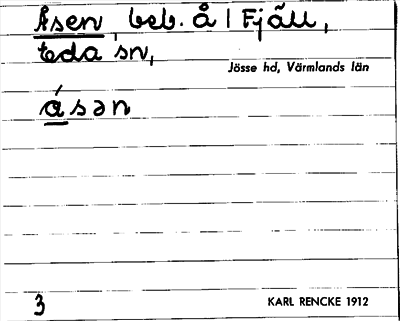 Åsen, beb. å I Fjäll,
teda sn,
Jösse hd, Värmlands län
ásən
3
KARL RENCKE 1912